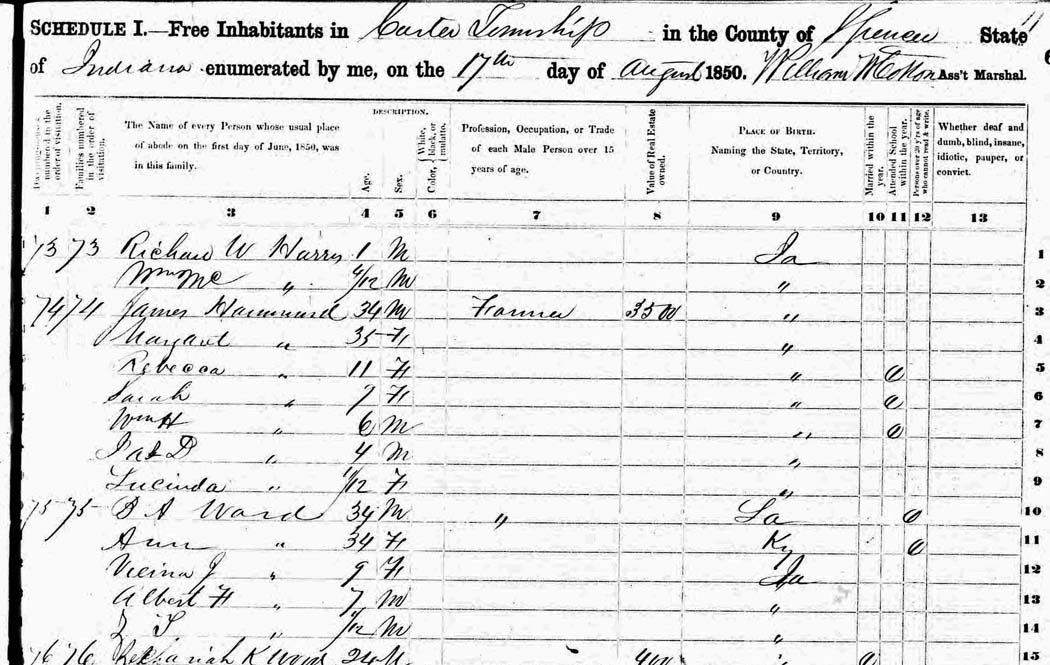 SCHEDULE I.—Free Inhabitants in Carter Township in the County of Spencer State
of Indiana enumerated by me, on the 17th day of August 1850. William McCotton Ass't Marshal.
DESCRIPTION.
numbered in the order of visitation.
Families numbered in the order of visitation.
The Name of every Person whose usual place of abode on the first day of June, 1850, was in this family.
Age.
Sex.
Color, { White, black, or mulatto.
Profession, Occupation, or Trade of each Male Person over 15 years of age.
Value of Real Estate owned.
PLACE OF BIRTH. Naming the State, Territory, or Country.
Married within the year.
Attended School within the year.
Persons over 20 y'rs of age who cannot read & write.
Whether deaf and dumb, blind, insane, idiotic, pauper, or convict.
1 2 3 4 5 6 7 8 9 10 11 12 13
73 73 Richard W Harris 1 M Ia 1
" M " 2
74 74 James Hammond 34 M Farmer 3500 " 3
Margaret " 35 F " 4
Rebecca " 11 F " 5
Sarah " 7 F " 6
Wm H " 6 M " 7
" 4 M " 8
Lucinda " F " 9
75 75 B A Ward 34 M " 10
Ann " 34 F Ky 11
J " 9 F Ia 12
Albert F " 7 M " 13
" M " 14
76 76 Zechariah K Wood 400 15